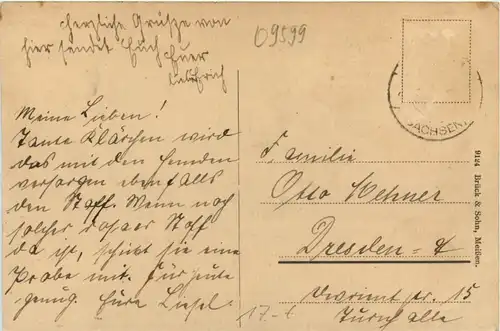 Herzliche Grüße von
hier sendet Euch Euer
Erich
09599
Meine Lieben!
Tante Klärchen wird
das mit den Hemden
versorgen ebenfalls
den Stoff. Wenn noch
solcher Stoff
da ist, schickt sie eine
Probe mit. Für heute
genug. Eure Liesel.
SACHSEN
Familie
Otto Mehner
Dresden-A
Devrient str. 15
Turnhalle
17.-
9124 Brück & Sohn, Meißen.